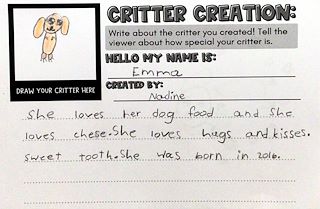 CRITTER CREATION:
Write about the critter you created! Tell the
viewer about how special your critter is.
HELLO MY NAME IS:
Emma
CREATED BY:
Nadine
DRAW YOUR CRITTER HERE
She loves her dog food and She
loves chese. She loves hugs and kisses.
sweet tooth. She was born in 2016.